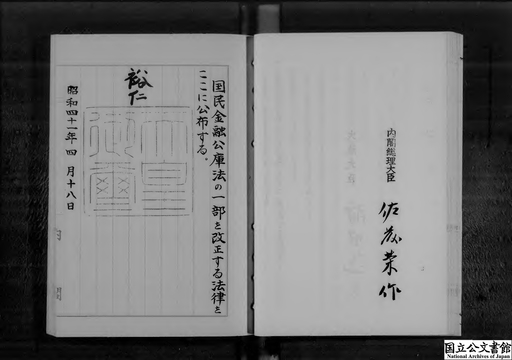 内閣総理大臣
佐藤栄作
国民金融公庫法の一部を改正する法律を
ここに公布する。
裕仁
天皇
御璽
昭和四十一年四月十八日
国立公文書館
National Archives of Japan